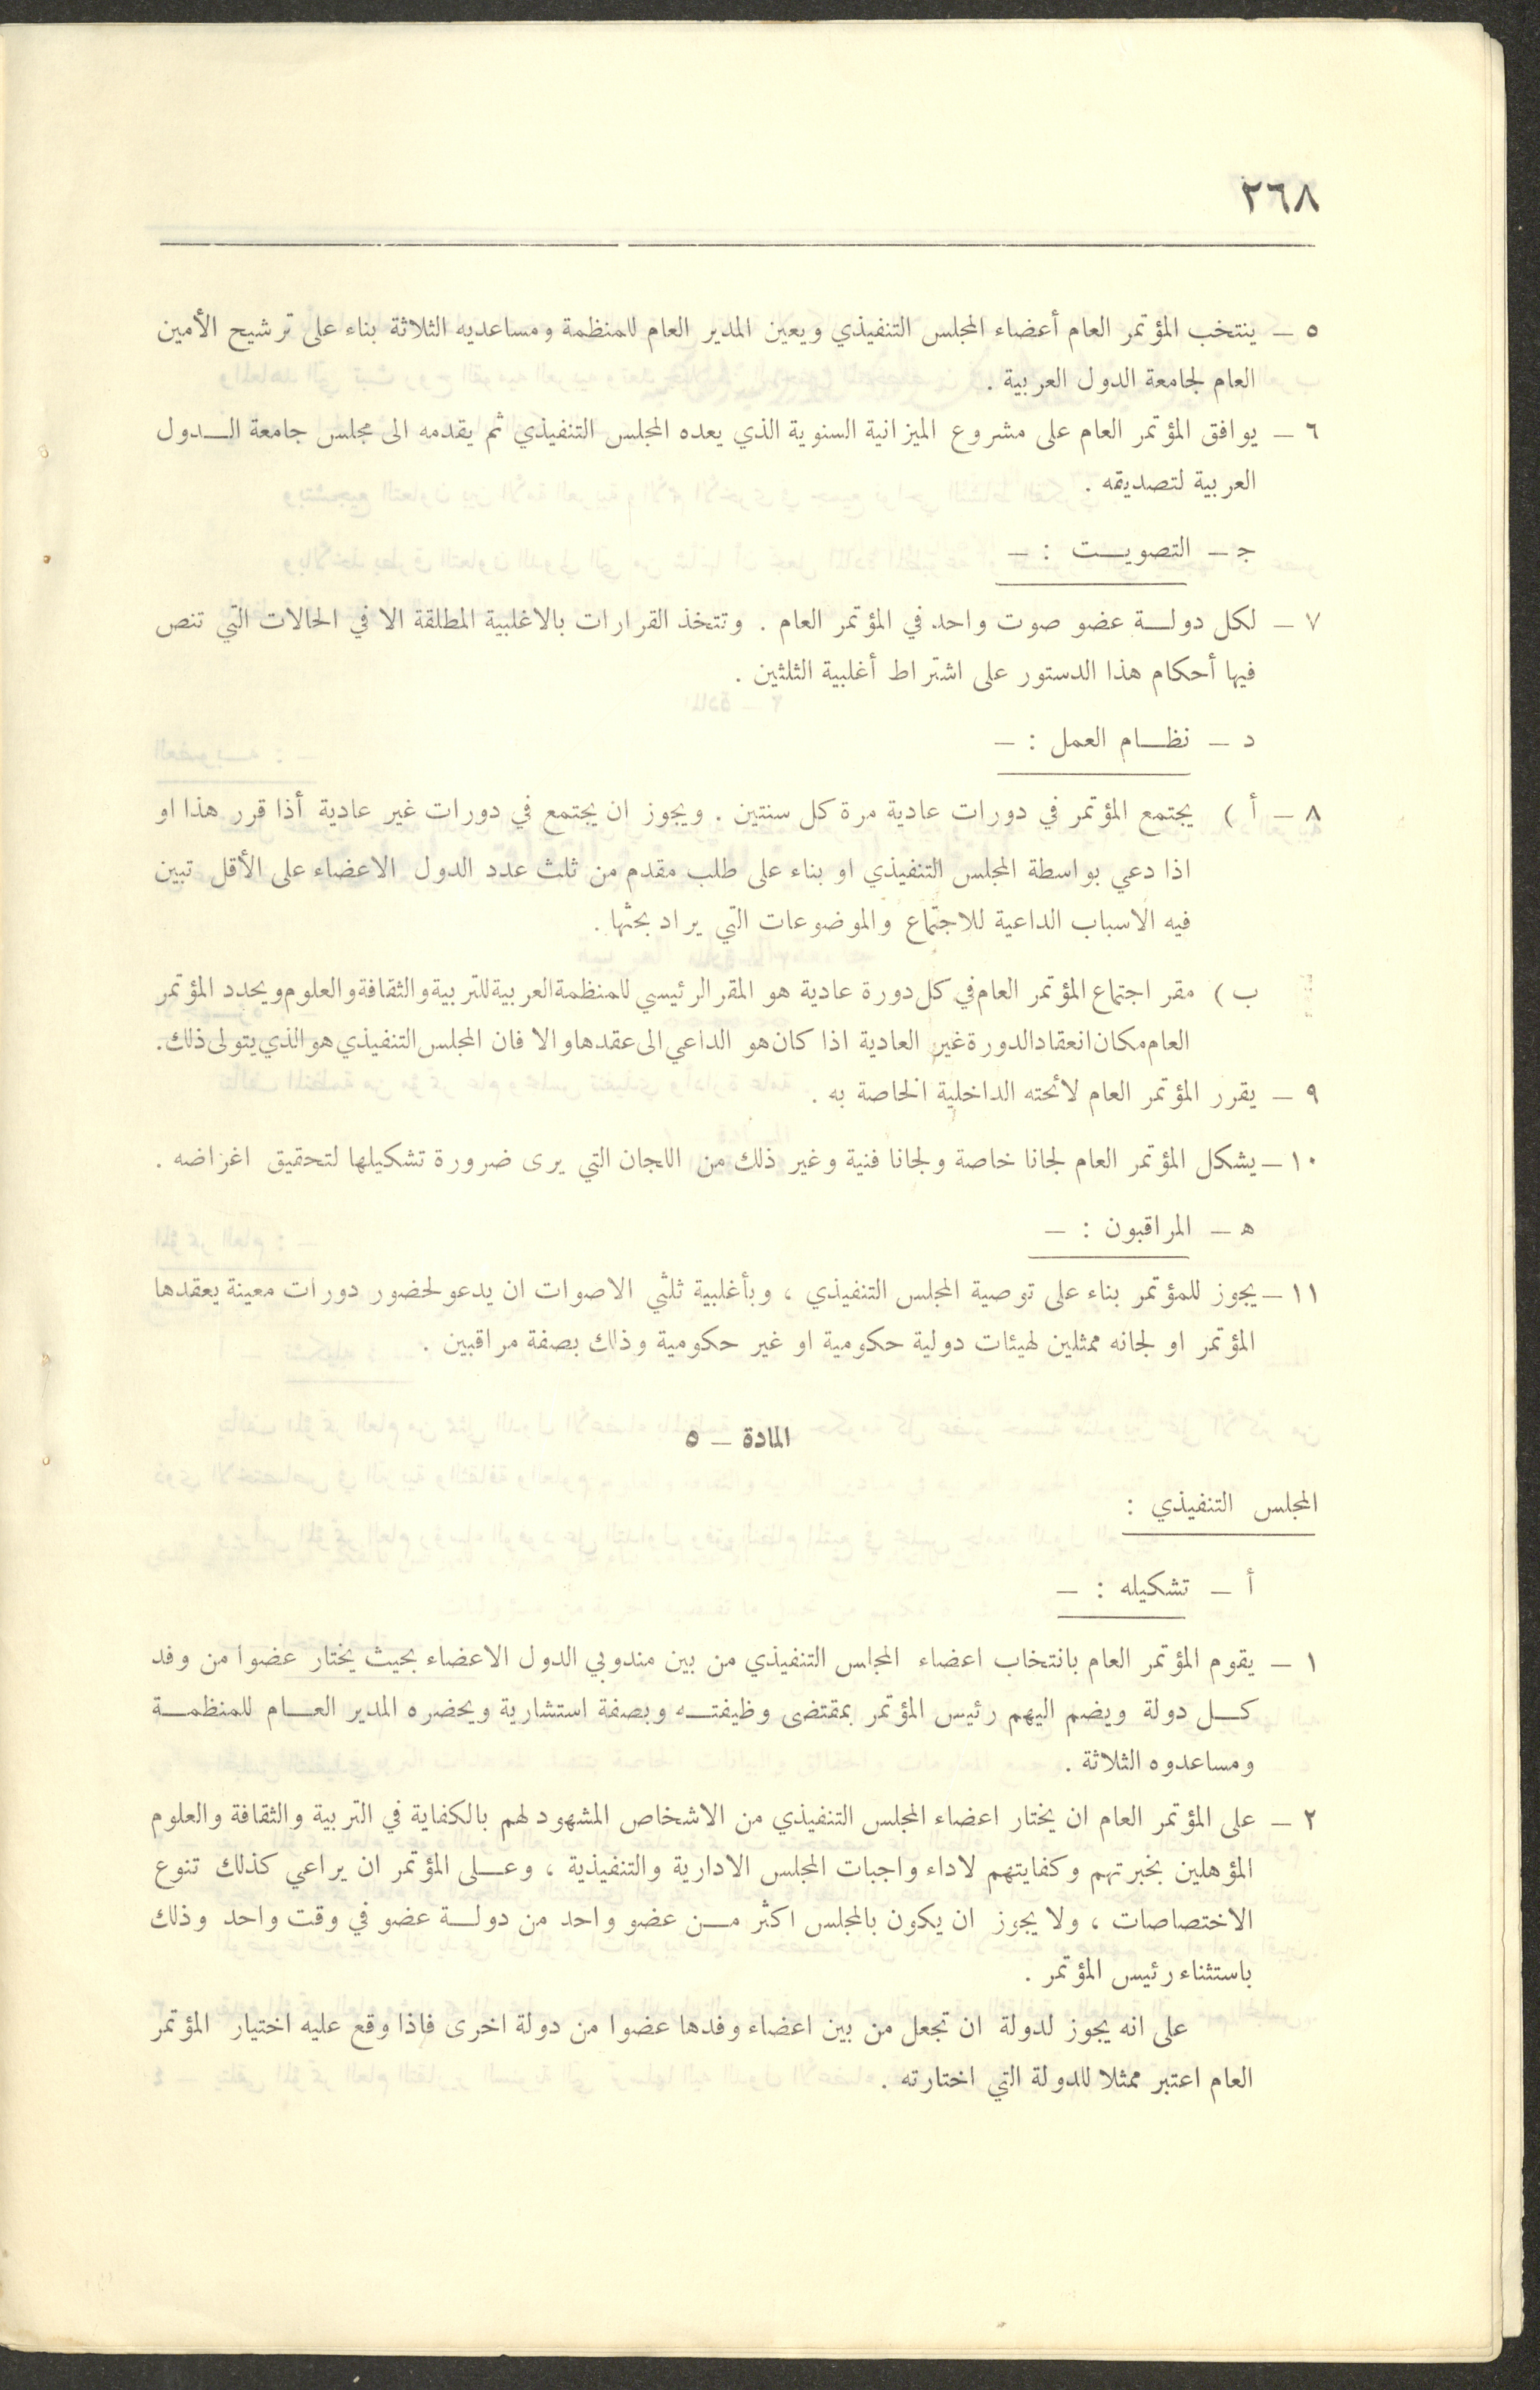 ٢٦٨
٥ – ينتخب المؤتمر العام أعضاء المجلس التنفيذي ويعين المدير العام للمنظمة ومساعديه الثلاثة بناء على ترشيح الأمين
العام لجامعة الدول العربية .
٦ – يوافق المؤتمر العام على مشروع الميزانية السنوية الذي يعده المجلس التنفيذي ثم يقدمه الى مجلس جامعة الـــدول
العربية لتصديقه .
جـ – التصويـــت : –
٧ – لكل دولـــة عضو صوت واحد في المؤتمر العام . وتتخذ القرارات بالاغلبية المطلقة الا في الحالات التي تنص
فيها أحكام هذا الدستور على اشتراط أغلبية الثلثين .
د – نظـــام العمل : –
٨ – أ ) يجتمع المؤتمر في دورات عادية مرة كل سنتين . ويجوز ان يجتمع في دورات غير عادية أذا قرر هذا او
اذا دعي بواسطة المجلس التنفيذي او بناء على طلب مقدم من ثلث عدد الدول الاعضاء على الأقل تبين
فيه الاسباب الداعية للاجتماع والموضوعات التي يراد بحثها .
ب ) مقر اجتماع المؤتمر العام في كل دورة عادية هو المقر الرئيسي للمنظمة العربية للتربية والثقافة والعلوم ويحدد المؤتمر
العام مكان انعقاد الدورة غير العادية اذا كان هو الداعي الى عقدها والا فان المجلس التنفيذي هو الذي يتولى ذلك .
٩ – يقرر المؤتمر العام لائحته الداخلية الخاصة به .
١٠ – يشكل المؤتمر العام لجانا خاصة ولجانا فنية وغير ذلك من اللجان التي يرى ضرورة تشكيلها لتحقيق اغراضه .
هـ – المراقبون : –
١١ – يجوز للمؤتمر بناء على توصية المجلس التنفيذي ، وبأغلبية ثلثي الاصوات ان يدعو لحضور دورات معينة يعقدها
المؤتمر او لجانه ممثلين لهيئات دولية حكومية او غير حكومية وذلك بصفة مراقبين .
المادة – ٥
المجلس التنفيذي :
أ – تشكيله : –
١ – يقوم المؤتمر العام بانتخاب اعضاء المجلس التنفيذي من بين مندوبي الدول الاعضاء بحيث يختار عضوا من وفد
كـــل دولة ويضم اليهم رئيس المؤتمر بمقتضى وظيفتـــه وبصفة استشارية ويحضره المدير العـــام للمنظمـــة
ومساعدوه الثلاثة .
٢ – على المؤتمر العام ان يختار اعضاء المجلس التنفيذي من الاشخاص المشهود لهم بالكفاية في التربية والثقافة والعلوم
المؤهلين بخبرتهم وكفايتهم لاداء واجبات المجلس الادارية والتنفيذية ، وعـــلى المؤتمر ان يراعي كذلك تنوع
الاختصاصات ، ولا يجوز ان يكون بالمجلس اكثر مـــن عضو واحد من دولـــة عضو في وقت واحد وذلك
باستثناء رئيس المؤتمر .
على انه يجوز لدولة ان تجعل من بين اعضاء وفدها عضوا من دولة اخرى فاذا وقع عليه اختيار المؤتمر
العام اعتبر ممثلا للدولة التي اختارته .